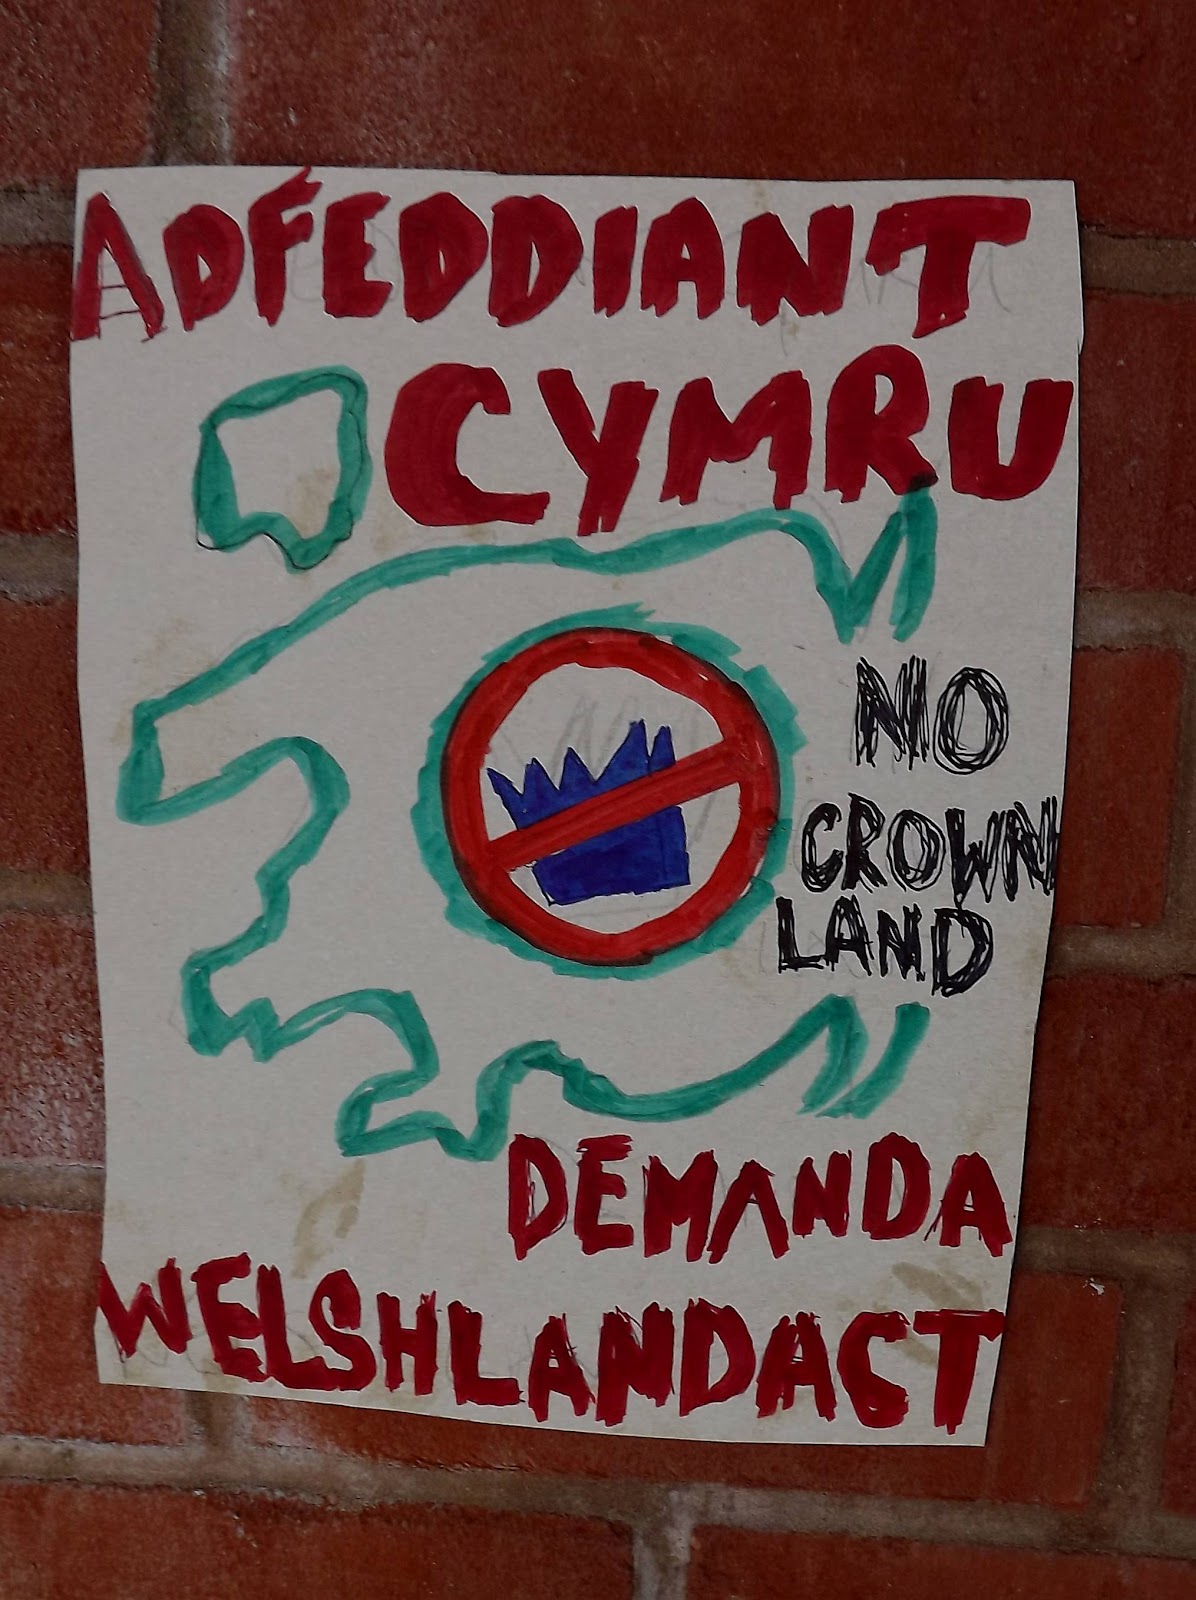 ADFEDDIANT
CYMRU
NO
CROWN
LAND
DEMANDA
WELSHLANDACT